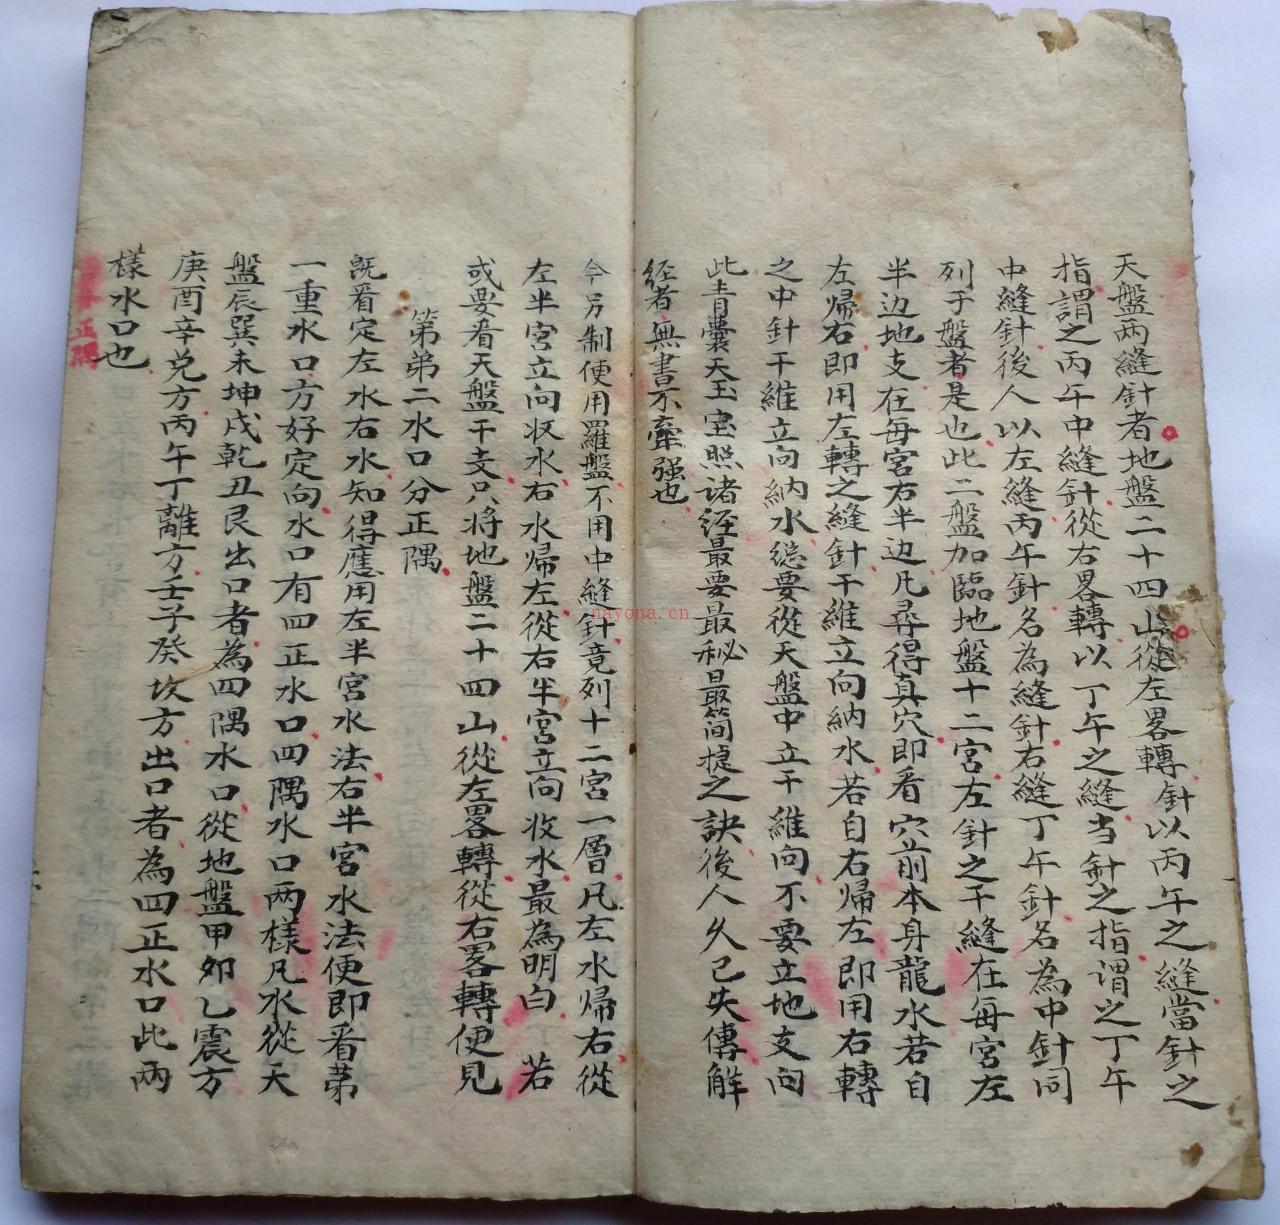 天盤兩縫針者地盤二十四山從左畧轉針以丙午之縫當針之
指謂之丙午中縫針從右畧轉以丁午之縫当針之指谓之丁午
中縫針後人以左縫丙午針名為縫針右縫丁午針名為中針同
列于盤者是也此二盤加臨地盤十二宮左針之干縫在每宮左
半边地支在每宮右半边凡尋得真穴即看穴前本身龍水若自
左歸右即用左轉之縫針干維立向納水若自右歸左即用右轉
之中針干維立向納水總要從天盤中立干維向不要立地支向
此青囊天玉宝照诸經最要最秘最简捷之訣後人久已失傳解
经者無書不牽强也
今另制便用羅盤不用中縫針竟列十二宮一層凡左水歸右從
左半宮立向收水右水歸左從右半宮立向收水最為明白若
或要看天盤干支只将地盤二十四山從左畧轉從右畧轉便見
第弟二水口分正隅
既看定左水右水知得應用左半宮水法右半宮水法便即看苐
一重水口方好定向水口有四正水口四隅水口两樣凡水從天
盤辰巽未坤戌乾丑艮出口者為四隅水口從地盤甲卯乙震方
庚酉辛兑方丙午丁離方壬子癸坎方出口者為四正水口此兩
樣水口也
正隅
nayona.cn